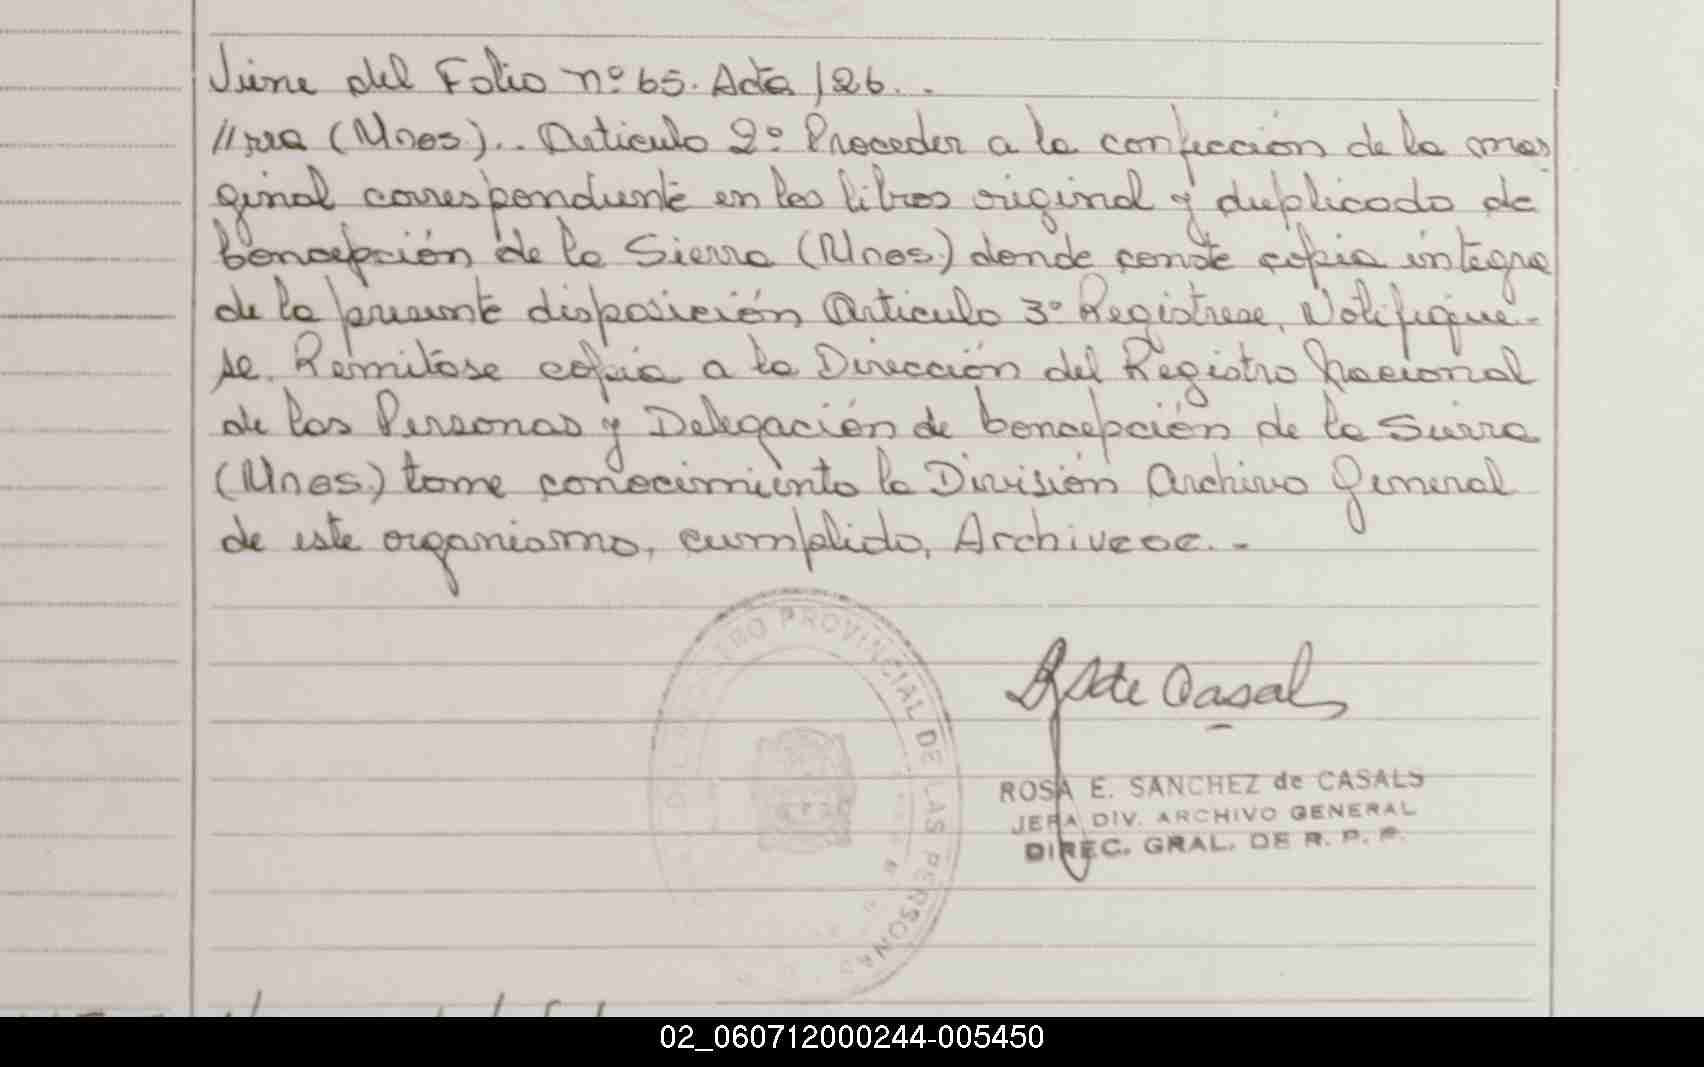 Viene del Folio nº 65. Acta 126..
//rra (Mnes).. Articulo 2º Proceder a la confeccion de la mar
ginal correspondiente en los libros original y duplicado de
Concepción de la Sierra (Mnes.) donde conste copia integra
de la presente disposición Articulo 3º Registrese, Notifique-
se. Remitase copia a la Dirección del Registro Nacional
de las Personas y Delegación de Concepción de la Sierra
(Mnes.) tome conocimiento la División Archivo General
de este organismo, cumplido, Archivese.-
REGISTRO PROVINCIAL DE LAS PERSONAS
de Casals
ROSA E. SANCHEZ de CASALS
JEFA DIV. ARCHIVO GENERAL
DIREC. GRAL. DE R. P. P.
02_060712000244-005450